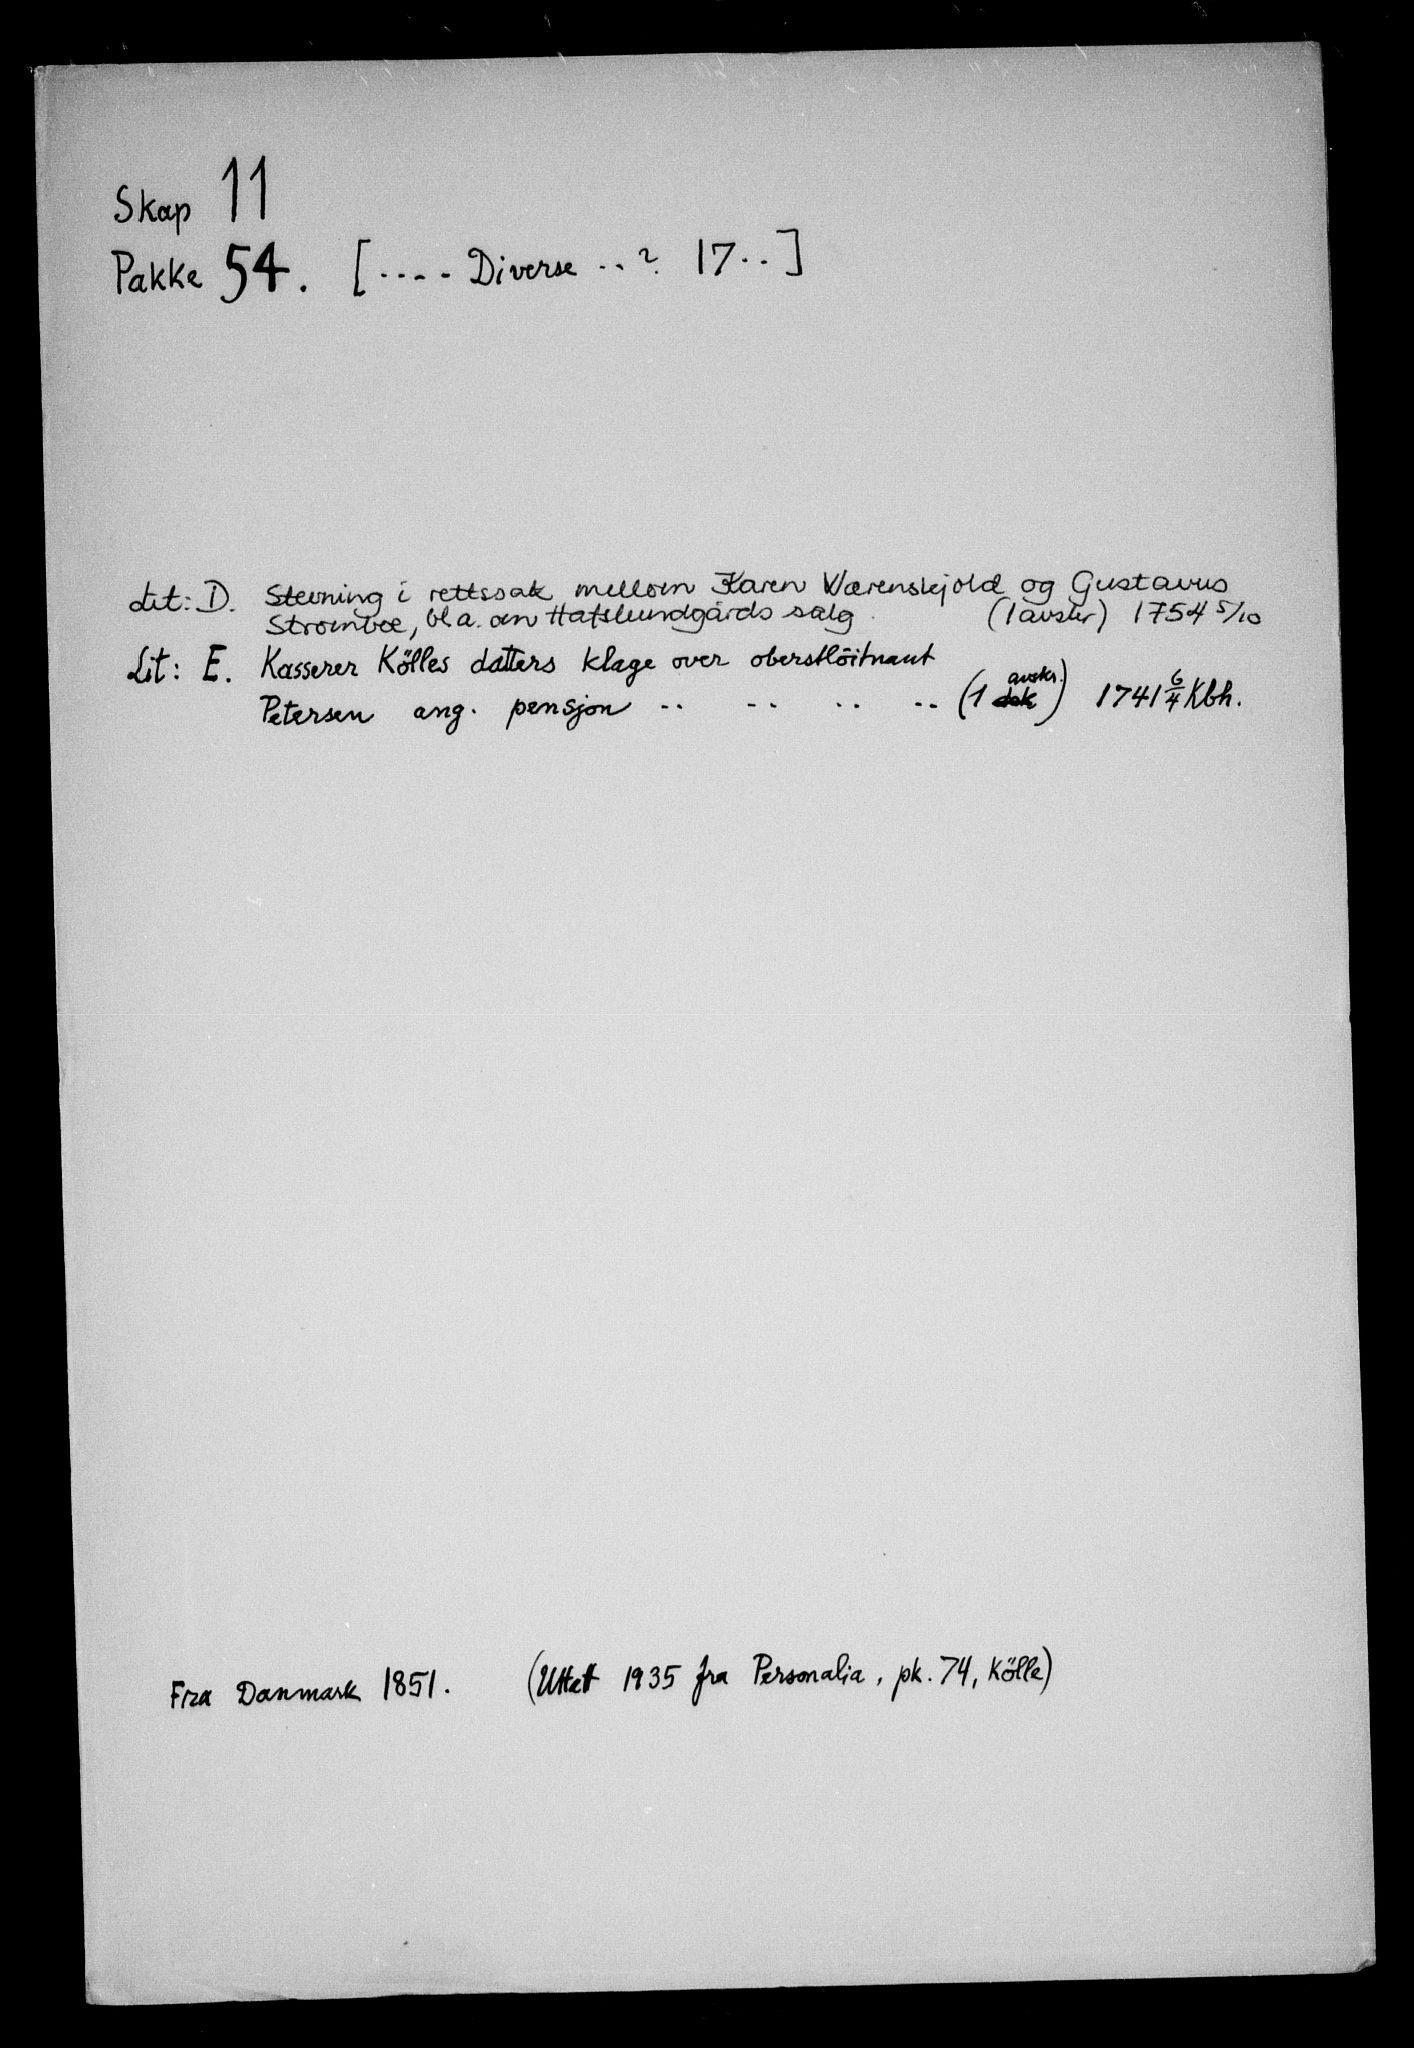 Skap 11
Pakke 54. [.... Diverse ..? 17..]
Lit: D. Stevning i rettssak mellom Karen Wærenskjold og Gustavus
Stromboe, bl a. om Hafslundgårds salg. (1 avskr) 1754 5/10
Lit: E. Kasserer Kölles datters klage over oberstlöitnant
Petersen ang. pensjon .. .. .. .. (1 dok avskr.) 1741 6/4 Kbh.
Fra Danmark 1851. (Uttatt 1935 fra Personalia, pk. 74, Kölle)